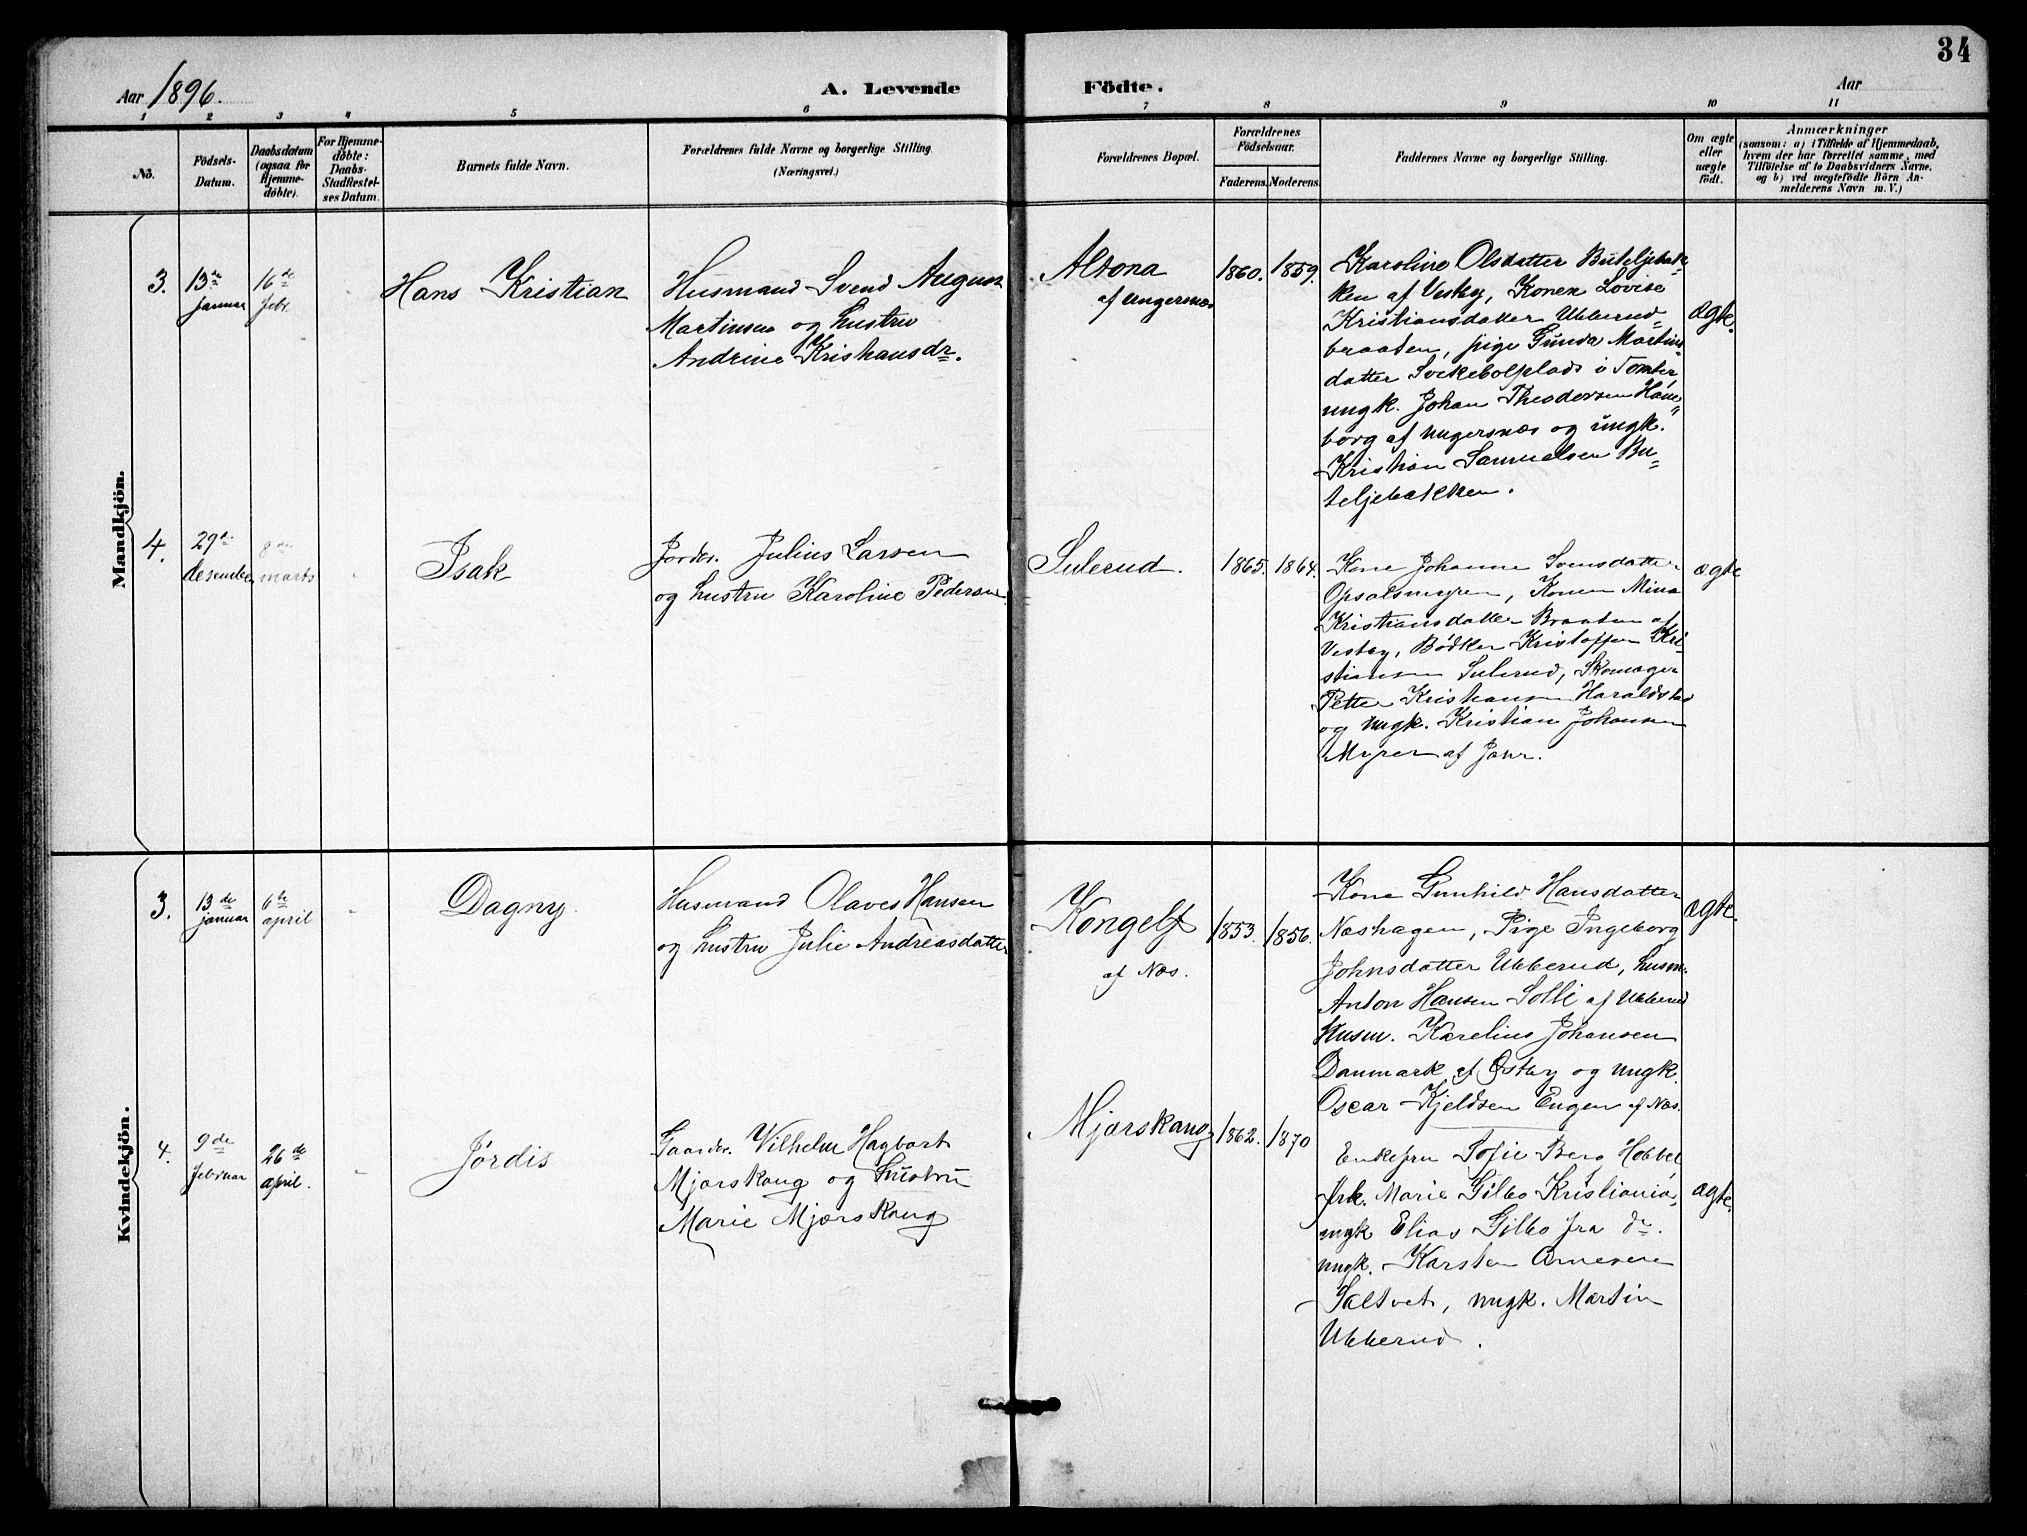 34
Aar 1896.
A. Levende Födte.
Aar
1 2 3 4 5 6 7 8 9 10 11
No.
Födsels-
Datum.
Daabsdatum
(ogsaa for
Hjemme-
døbte).
For Hjemme-
døbte:
Daabs-
Stadfæstel-
ses Datum.
Barnets fulde Navn.
Forældrenes fulde Navne og borgerlige Stilling.
(Næringsvei.)
Forældrenes Bopæl.
Forældrenes
Födselsaar.
Faderens. Moderens.
Faddernes Navne og borgerlige Stilling.
Om ægte
eller
uægte
födt.
Anmærkninger
(saasom: a) i Tilfælde af Hjemmedaab,
hvem der har forrettet samme, med
Tilföielse af to Daabsvidners Navne,
og b) ved uægtefödte Börn An-
melderens Navn m. V.)
Mandkjön.
3.
13de
januar
16de
febr.
Hans Kristian
Husmand Svend August
Martinsen og hustru
Andrine Kristiansdr.
Altona
af Ungersnæs
1860. 1859.
Karoline Olsdatter Buteljebak-
ken af Vestby, Konen Lovise
Kristiansdatter Ubberud-
braaten, pige Gunda Martins-
datter plads i Tomter
ungk. Johan Theodorsen Haae-
borg af Ungersnæs og ungk.
Kristian Samuelsen Bu-
teljebakken.
ægte.
4.
29de
desember
8de
marts
Isak
Jordbr. Julius Larsen
og hustru Karoline Pedersen
Sulerud.
1865. 1864.
Kone Johanne Svensdatter
Opsalsmyren, Konen Mina
Kristiansdatter Braaten af
Vestby, Bødker Kristoffer Kri-
stiansen Sulerud, Skomager
Petter Kristiansen Haraldstad
og ungk. Kristian Johansen
Myren af Jahr.
ægte
Kvindekjön.
3.
13de
januar
6te
april
Dagny.
Husmand Olaves Hansen
og hustru Julie Andreasdatter
Kongelf
af Næs.
1853. 1856.
Kone Gunhild Hansdatter
Næshagen, Pige Ingeborg
Johnsdatter Ubberud, husm.
Anton Hansen Solli af Ubberud
Husm. Karelius Johansen
Danmark af Østby og ungk.
Oscar Kjeldsen Engen af Næs.
ægte.
4.
9de
februar
26de
april.
Jørdis
Gaardbr. Vilhelm Hagbart
Mjørskaug og hustru
Marie Mjørskaug
Mjørskaug
1862. 1870
Enkefru Sofie Berg Hobbel
frk. Marie Gilbo Kristiania,
ungk Elias Gilbo fra do.
ungk. Karsten Arnesen
Saltvet, ungk. Martin
Ubberud.
ægte.